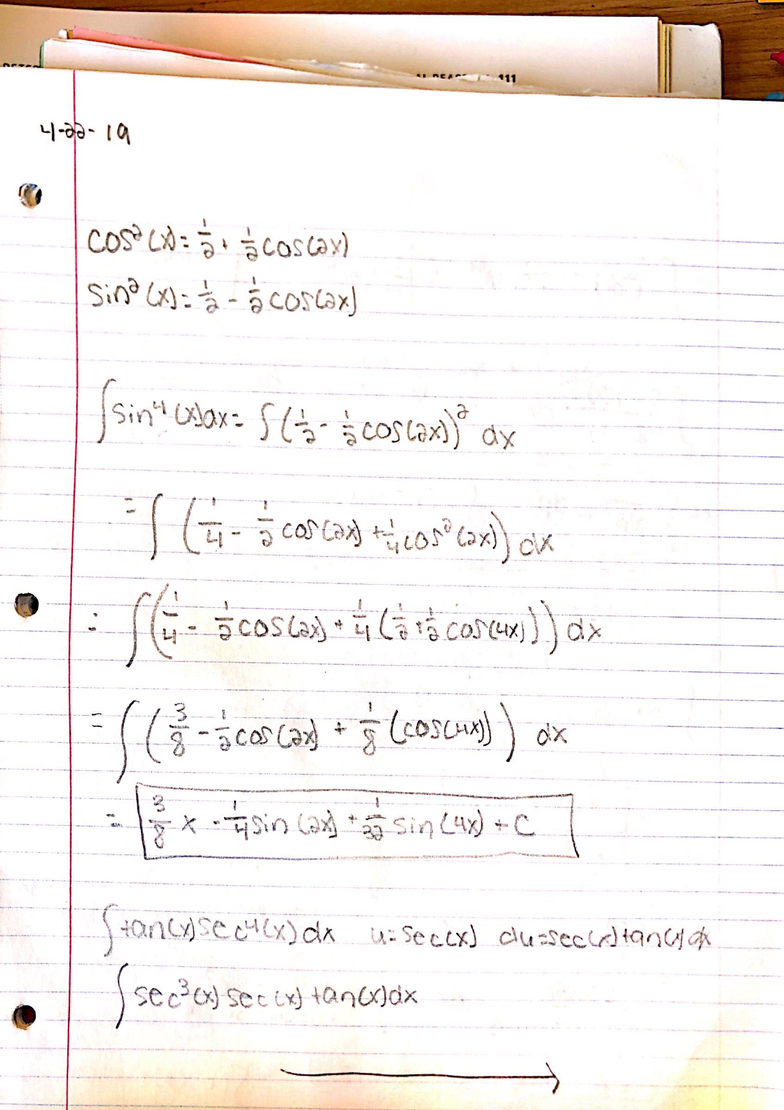 111
4-22-19
cos²(x)= 1/2 + 1/2 cos(2x)
sin²(x)= 1/2 - 1/2 cos(2x)
∫sin⁴(x)dx= ∫(1/2 - 1/2 cos(2x))² dx
= ∫(1/4 - 1/2 cos(2x) + 1/4 cos²(2x)) dx
= ∫(1/4 - 1/2 cos(2x) + 1/4 (1/2 + 1/2 cos(4x))) dx
= ∫(3/8 - 1/2 cos(2x) + 1/8 (cos(4x))) dx
= 3/8 x - 1/4 sin(2x) + 1/32 sin(4x) + C
∫tan(x)sec⁴(x)dx u=sec(x) du=sec(x)tan(x)dx
∫sec³(x)sec(x)tan(x)dx